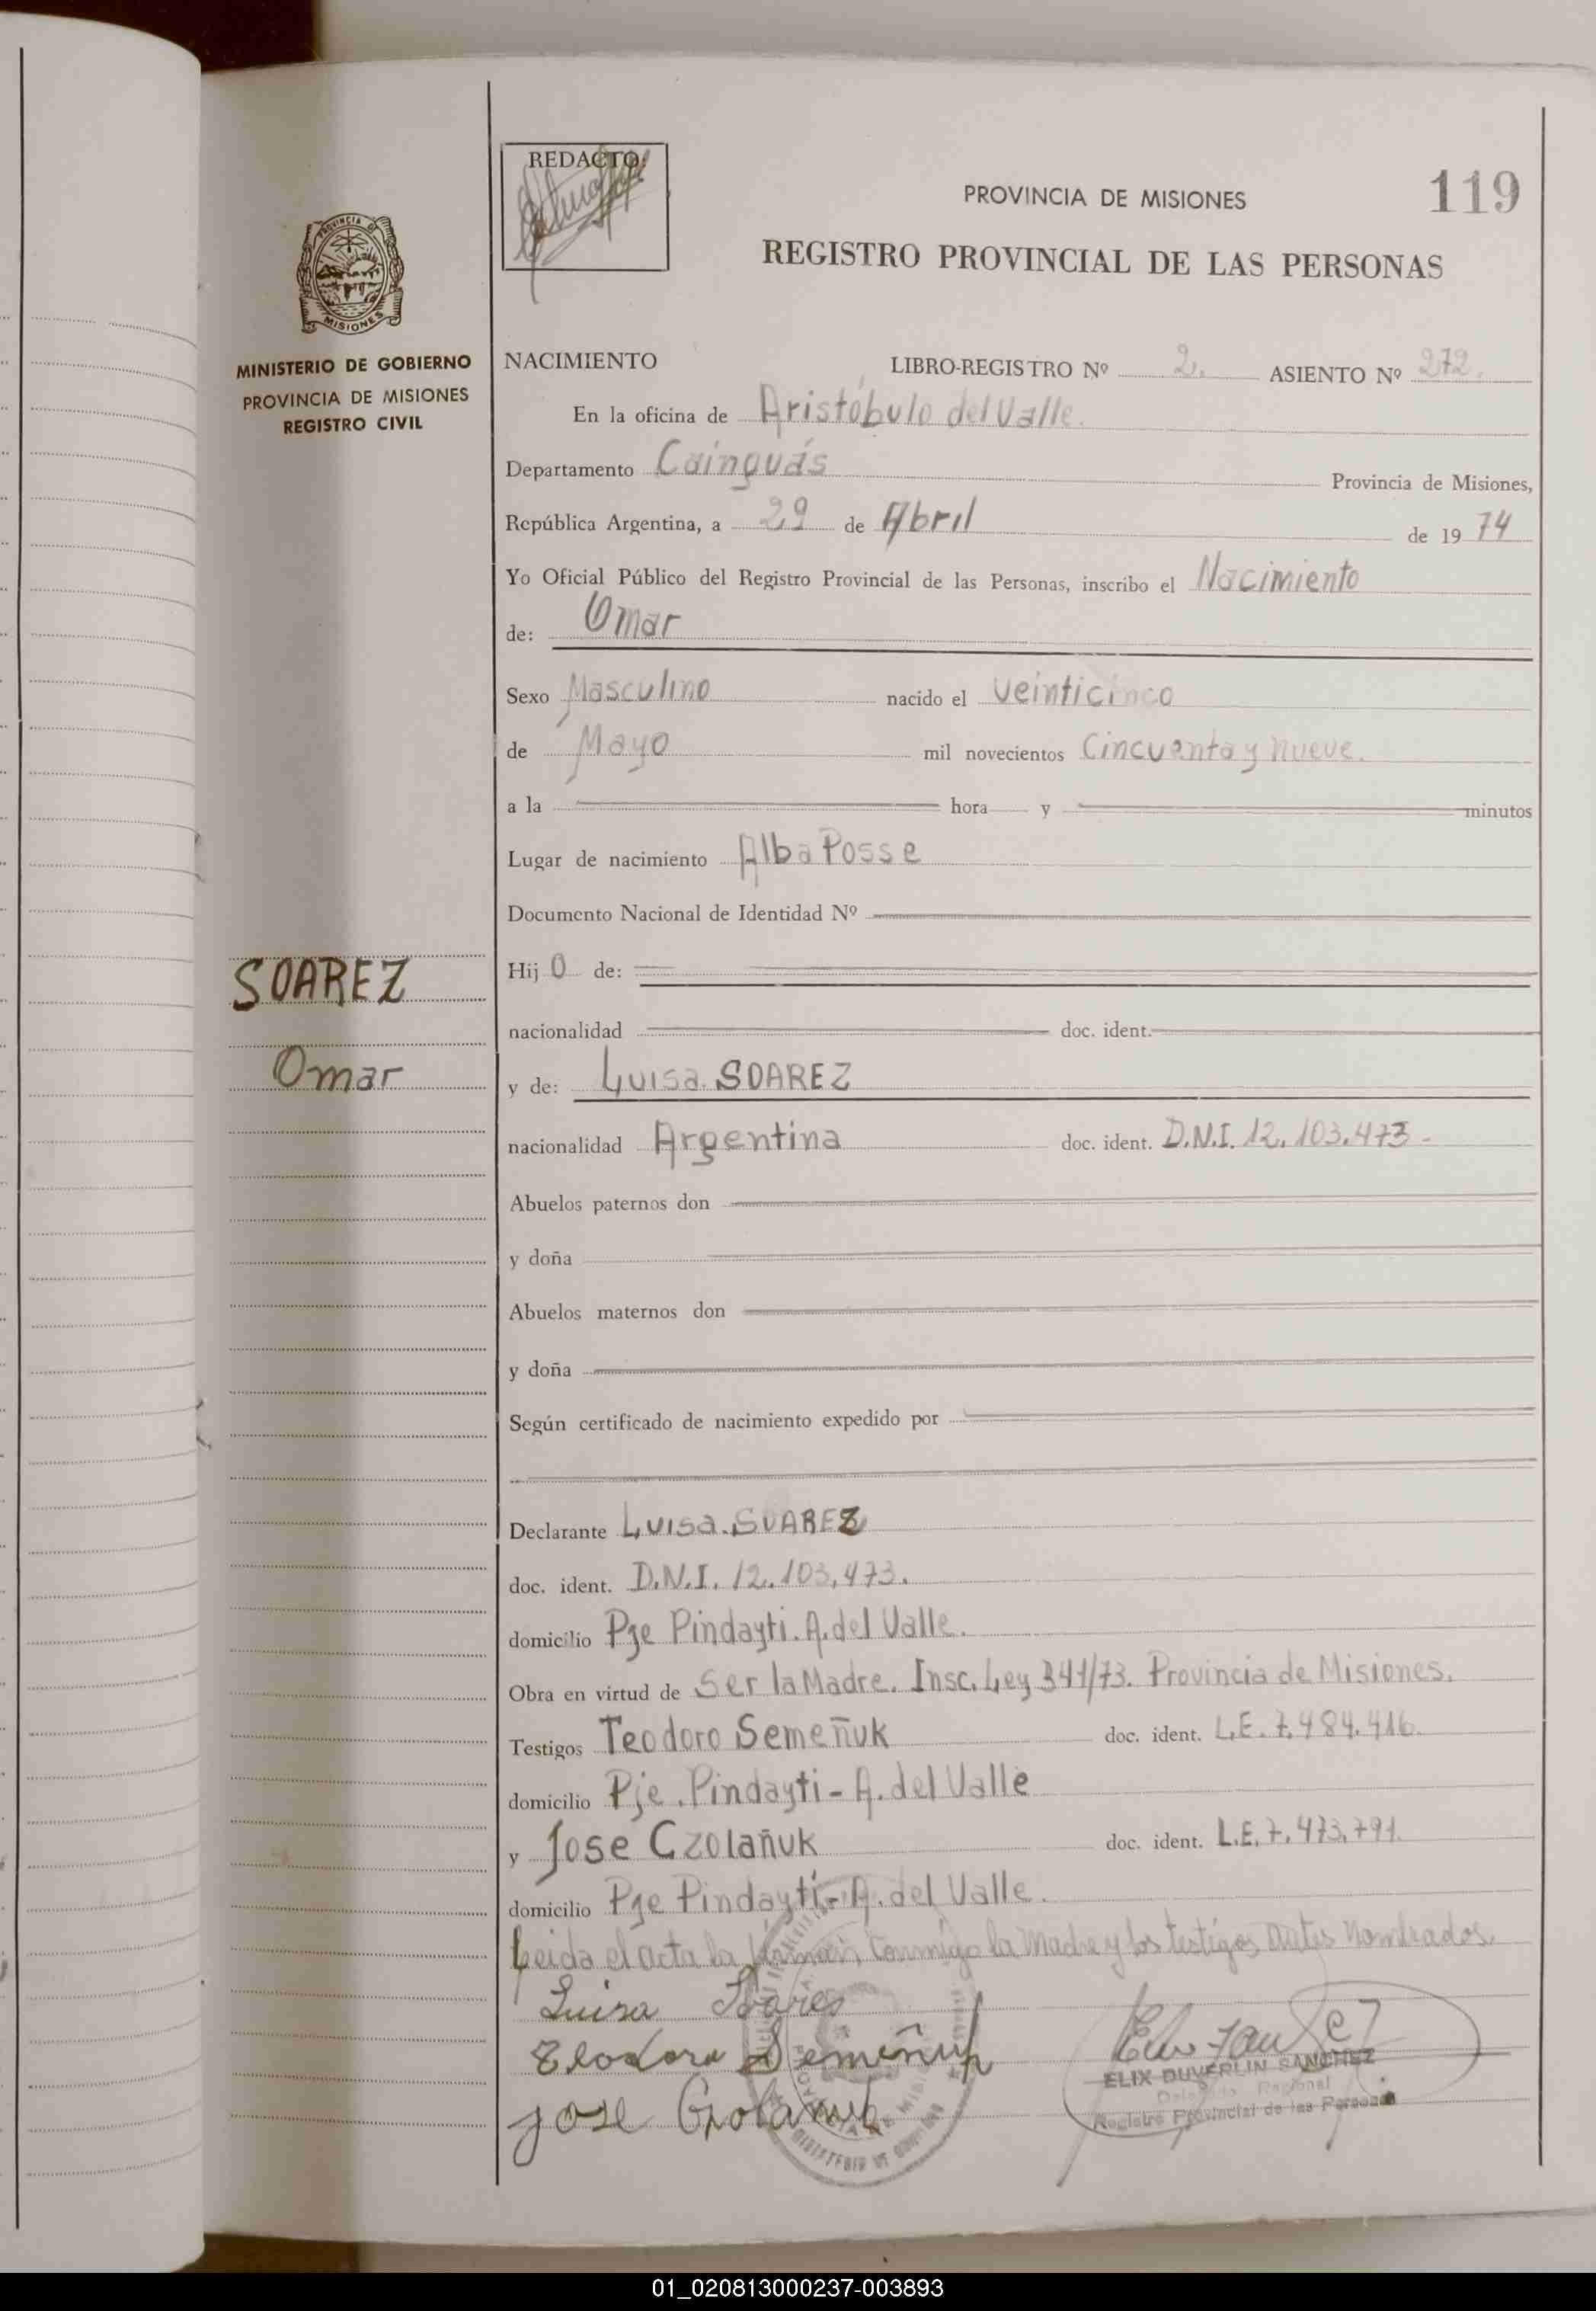 REDACTO:
PROVINCIA DE MISIONES
119
REGISTRO PROVINCIAL DE LAS PERSONAS
PROVINCIA DE
MISIONES
MINISTERIO DE GOBIERNO
PROVINCIA DE MISIONES
REGISTRO CIVIL
NACIMIENTO LIBRO-REGISTRO Nº 2. ASIENTO Nº 272.
En la oficina de Aristóbulo del Valle.
Departamento Cainguás Provincia de Misiones,
República Argentina, a 29 de Abril de 19 74
Yo Oficial Público del Registro Provincial de las Personas, inscribo el Nacimiento
de: Omar
Sexo Masculino nacido el veinticinco
de Mayo mil novecientos Cincuenta y nueve.
a la hora y minutos
Lugar de nacimiento Alba Posse
Documento Nacional de Identidad Nº
SOAREZ
Hij O de:
nacionalidad doc. ident.
Omar
y de: Luisa. SOAREZ
nacionalidad Argentina doc. ident. D.N.I. 12.103.473-
Abuelos paternos don
y doña
Abuelos maternos don
y doña
Según certificado de nacimiento expedido por
Declarante Luisa. SOAREZ
doc. ident. D.N.I. 12.103.473.
domicilio Pje Pindayti. A. del Valle.
Obra en virtud de Ser la Madre. Insc. Ley 341/73. Provincia de Misiones.
Testigos Teodoro Semeñuk doc. ident. L.E. 7.484.416.
domicilio Pje. Pindayti - A. del Valle
y Jose Czolañuk doc. ident. L.E. 7.473.791.
domicilio Pje Pindayti - A. del Valle.
Leida el acta la firman, conmigo la Madre y los testigos antes nombrados.
Luisa Soares
Teodoro Semeñuk
Jose Czolañuk
ELIX DUVERLIN SANCHEZ
Delegado Regional
Registro Provincial de las Personas
MINISTERIO DE GOBIERNO
01_020813000237-003893